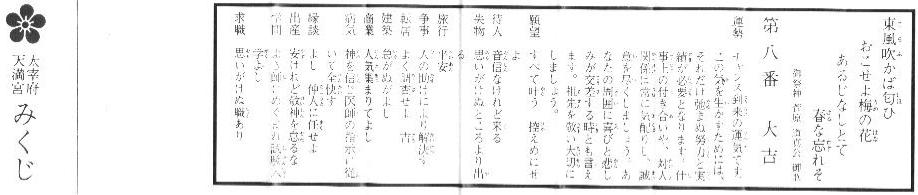 東風吹かば匂ひ
おこせよ梅の花
あるじなしとて
春を忘れそ
御祭神 菅原道真公 御歌
第八番 大吉
運勢
チャンス到来の運気です。
この気を生かすためには、
それだけ強よぬ努力と実
績が必要となります。仕
事上の付き合いや、対人
関係に常に気配りし、誠
意を尽くしましょう。あ
なたの周囲に喜びと悲し
みが交差する時とも言え
ます。祖先を敬い大切に
しましょう。
願望 すべて叶う 控えめにせ
よ
待人 音信なけれど来る
失物 思いがけぬところより出
る
旅行 平安
争事 人の助けにより解決す
転居 よく調査せよ 吉
建築 急がぬがよし
商業 人気集まりてよし
病気 神を信じ医師の指示に従
いて全快す
縁談 よし 仲人に任せよ
出産 安けれど敬神を怠るな
学問
学よし
求職 思いがけぬ職あり
太宰府
天満宮
みくじ